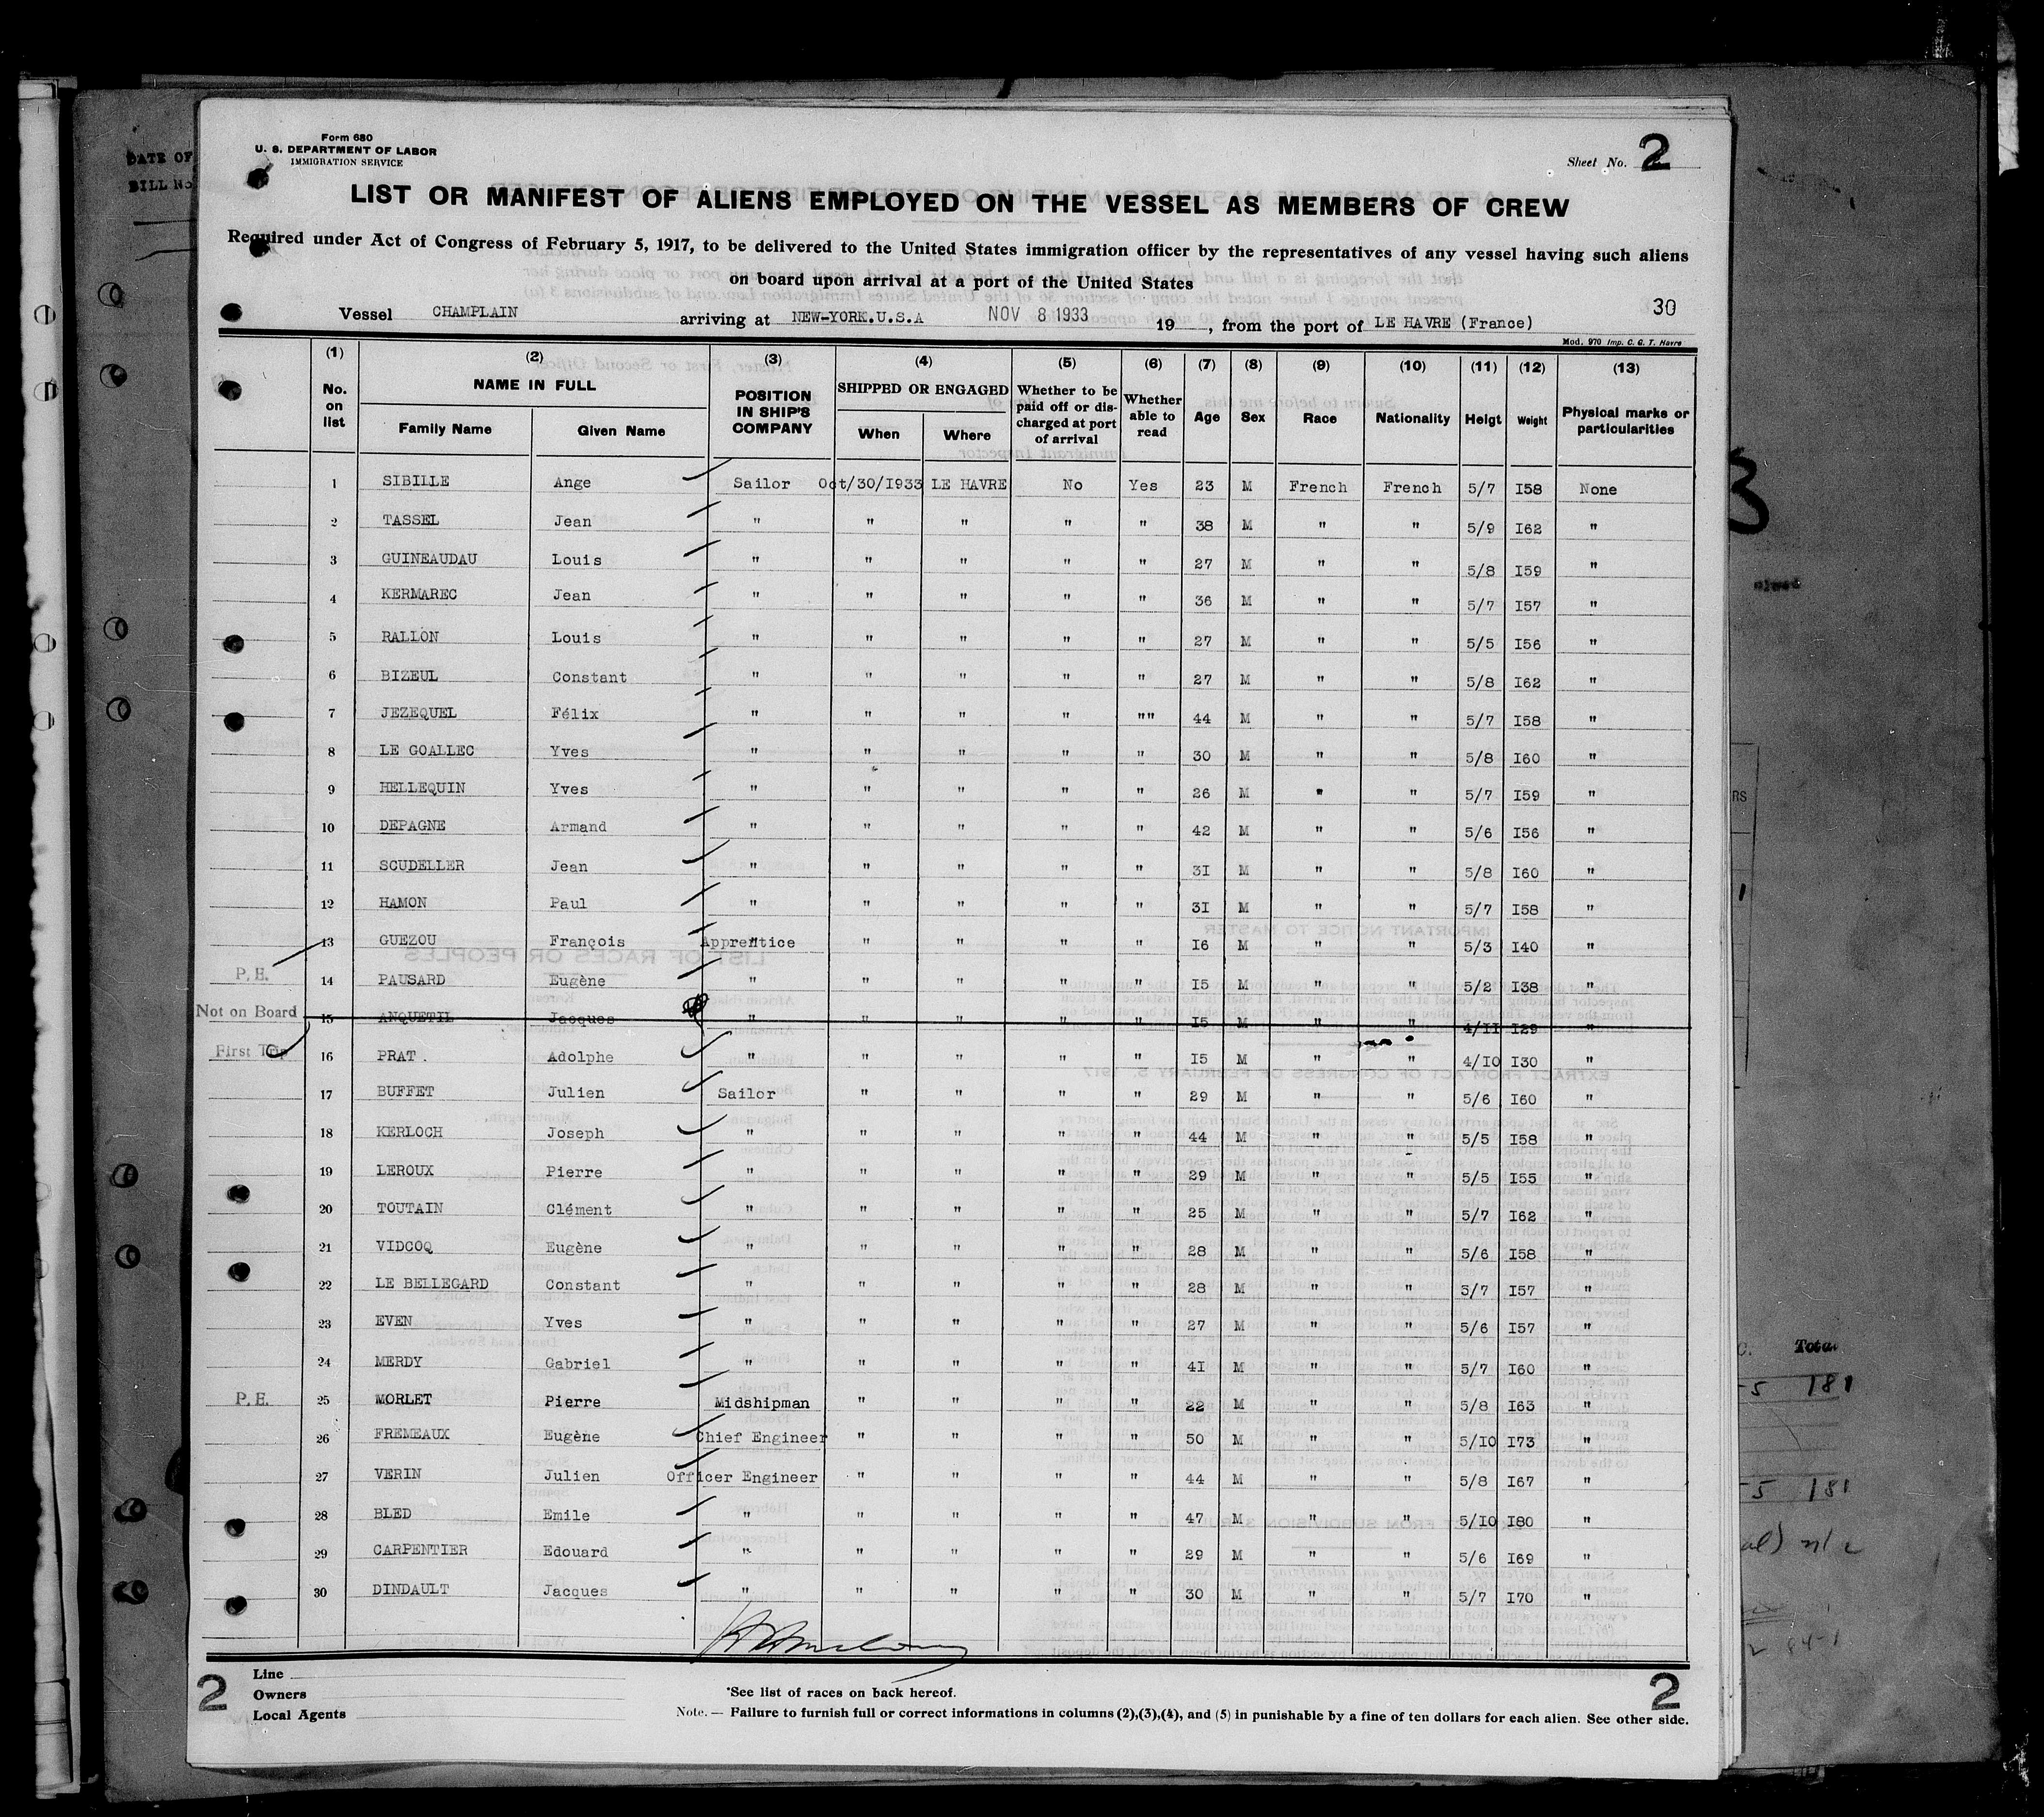 Form 680
U. S. DEPARTMENT OF LABOR
IMMIGRATION SERVICE
Sheet No. 2
LIST OR MANIFEST OF ALIENS EMPLOYED ON THE VESSEL AS MEMBERS OF CREW
Required under Act of Congress of February 5, 1917, to be delivered to the United States immigration officer by the representatives of any vessel having such aliens
on board upon arrival at a port of the United States
30
Vessel CHAMPLAIN arriving at NEW-YORK.U.S.A NOV 8 1933 19 , from the port of LE HAVRE (France)
Mod. 970 Imp. C. G. T. Havre
(1) (2) (3) (4) (5) (6) (7) (8) (9) (10) (11) (12) (13)
No. on list NAME IN FULL Family Name Given Name POSITION IN SHIP'S COMPANY SHIPPED OR ENGAGED When Where Whether to be paid off or dis-charged at port of arrival Whether able to read Age Sex Race Nationality Heigt Weight Physical marks or particularities
1 SIBILLE Ange Sailor Oct/30/I933 LE HAVRE No Yes 23 M French French 5/7 I58 None
2 TASSEL Jean " " " " " 38 M " " 5/9 I62 "
3 GUINEAUDAU Louis " " " " " 27 M " " 5/8 I59 "
4 KERMAREC Jean " " " " " 36 M " " 5/7 I57 "
5 RALLON Louis " " " " " 27 M " " 5/5 I56 "
6 BIZEUL Constant " " " " " 27 M " " 5/8 I62 "
7 JEZEQUEL Félix " " " " "" 44 M " " 5/7 I58 "
8 LE GOALLEC Yves " " " " " 30 M " " 5/8 I60 "
9 HELLEQUIN Yves " " " " " 26 M " " 5/7 I59 "
10 DEPAGNE Armand " " " " " 42 M " " 5/6 I56 "
11 SCUDELLER Jean " " " " " 3I M " " 5/8 I60 "
12 HAMON Paul " " " " " 3I M " " 5/7 I58 "
13 GUEZOU François Apprentice " " " " I6 M " " 5/3 I40 "
P. H. 14 PAUSARD Eugène " " " " " I5 M " " 5/2 I38 "
Not on Board 15 ANQUETIL Jacques " " " " " I5 M " " 4/II I29 "
First Trip 16 PRAT . Adolphe " " " " " I5 M " " 4/I0 I30 "
17 BUFFET Julien Sailor " " " " 29 M " " 5/6 I60 "
18 KERLOCH Joseph " " " " " 44 M " " 5/5 I58 "
19 LEROUX Pierre " " " " " 29 M " " 5/5 I55 "
20 TOUTAIN Clément " " " " " 25 M " " 5/7 I62 "
21 VIDCOQ Eugène " " " " " 28 M " " 5/6 I58 "
22 LE BELLEGARD Constant " " " " " 28 M " " 5/7 I57 "
23 EVEN Yves " " " " " 27 M " " 5/6 I57 "
24 MERDY Gabriel " " " " " 4I M " " 5/7 I60 "
P. H. 25 MORLET Pierre Midshipman " " " " 22 M " " 5/8 I63 "
26 FREMEAUX Eugène Chief Engineer " " " " 50 M " " 5/I0 I73 "
27 VERIN Julien Officer Engineer " " " " 44 M " " 5/8 I67 "
28 BLED Emile " " " " " 47 M " " 5/I0 I80 "
29 CARPENTIER Edouard " " " " " 29 M " " 5/6 I69 "
30 DINDAULT Jacques " " " " " 30 M " " 5/7 I70 "
2 Line
Owners
Local Agents
*See list of races on back hereof.
Note. — Failure to furnish full or correct informations in columns (2),(3),(4), and (5) in punishable by a fine of ten dollars for each alien. See other side.
2
DATE OF
BILL No
Total
181
181